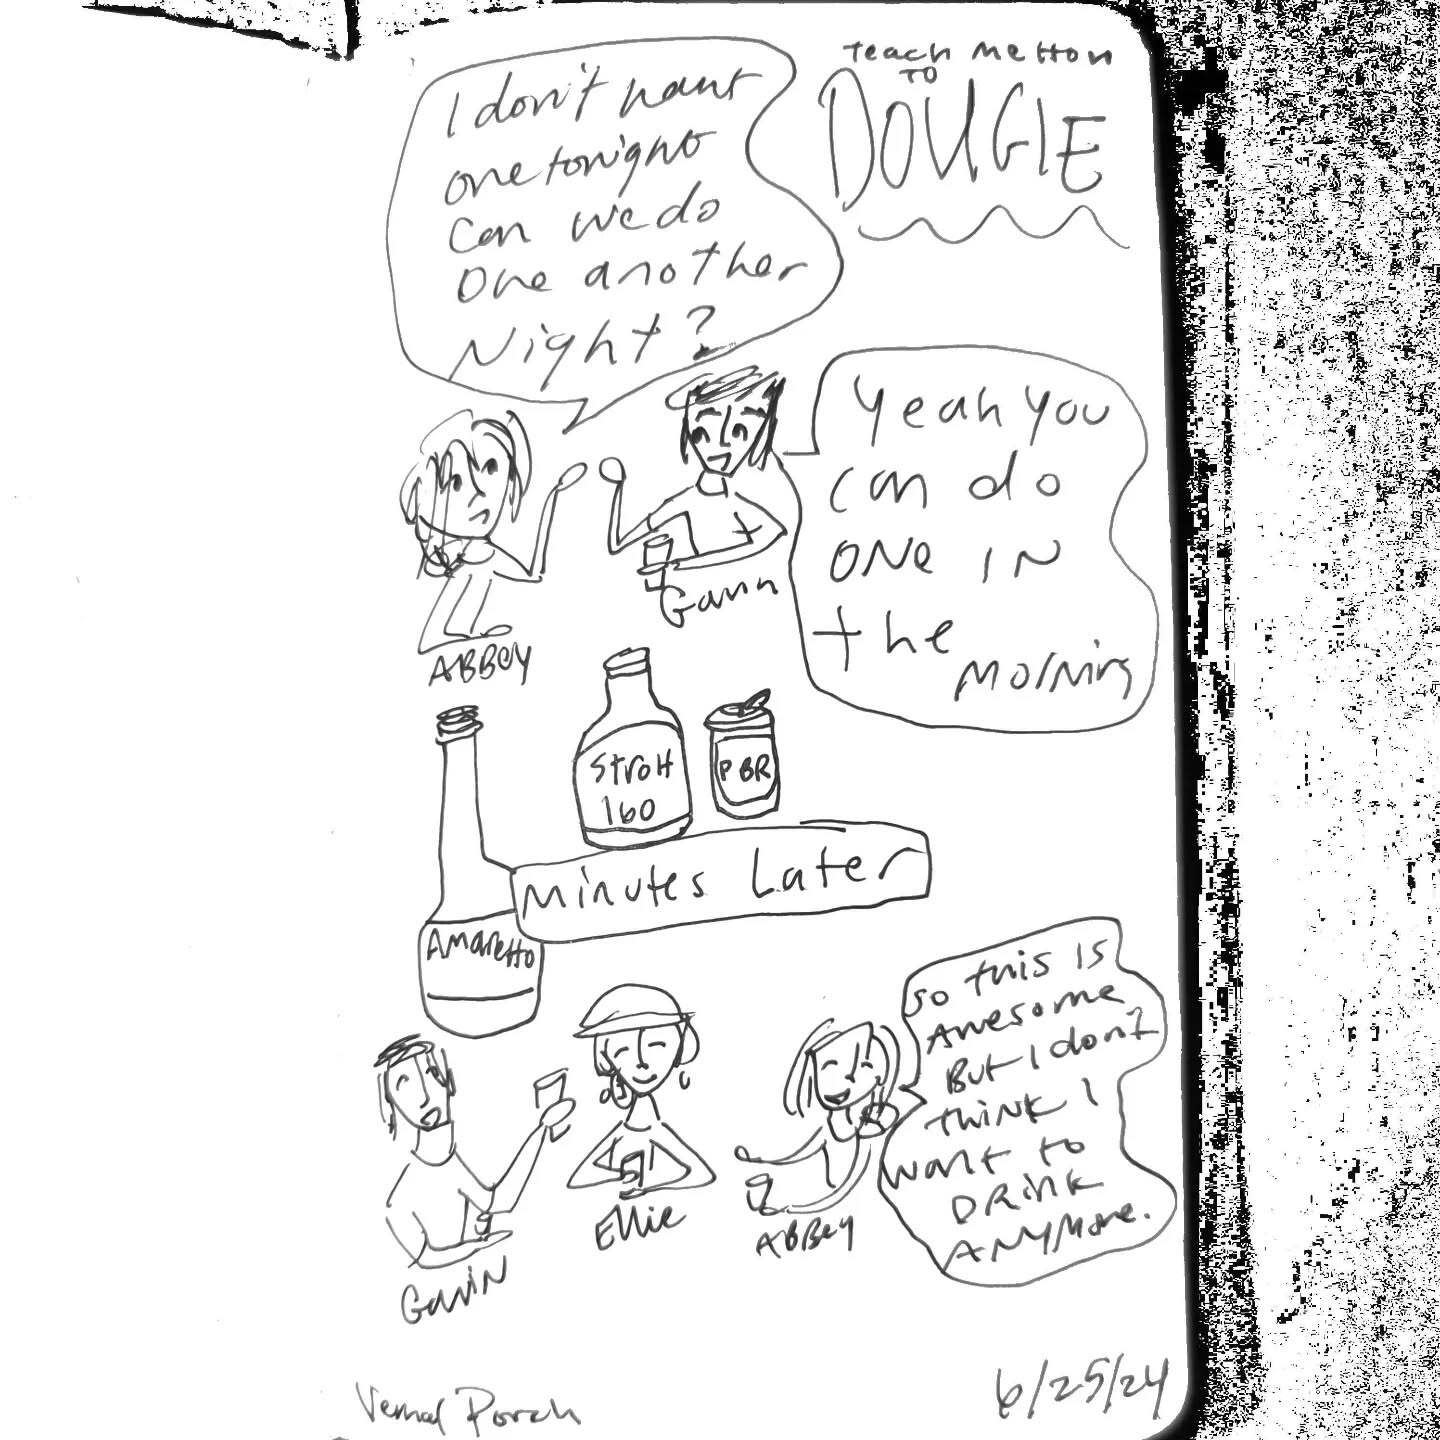 Teach me How
TO
DOUGIE
I don't want
one tonight
Can we do
One another
Night?
Yeah you
can do
ONe IN
the
Morning
Gavin
ABBEY
StroH
160
PBR
Minutes Later
Amaretto
So this is
Awesome
But I don't
think I
want to
DRink
ANYMore.
Ellie
ABBey
GaviN
Vernal Porch
6/25/24